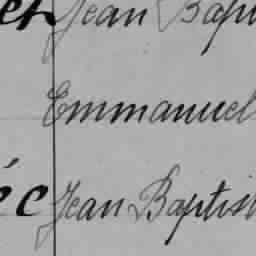 Jean Bapt
Emmanuel
éc Jean Baptis